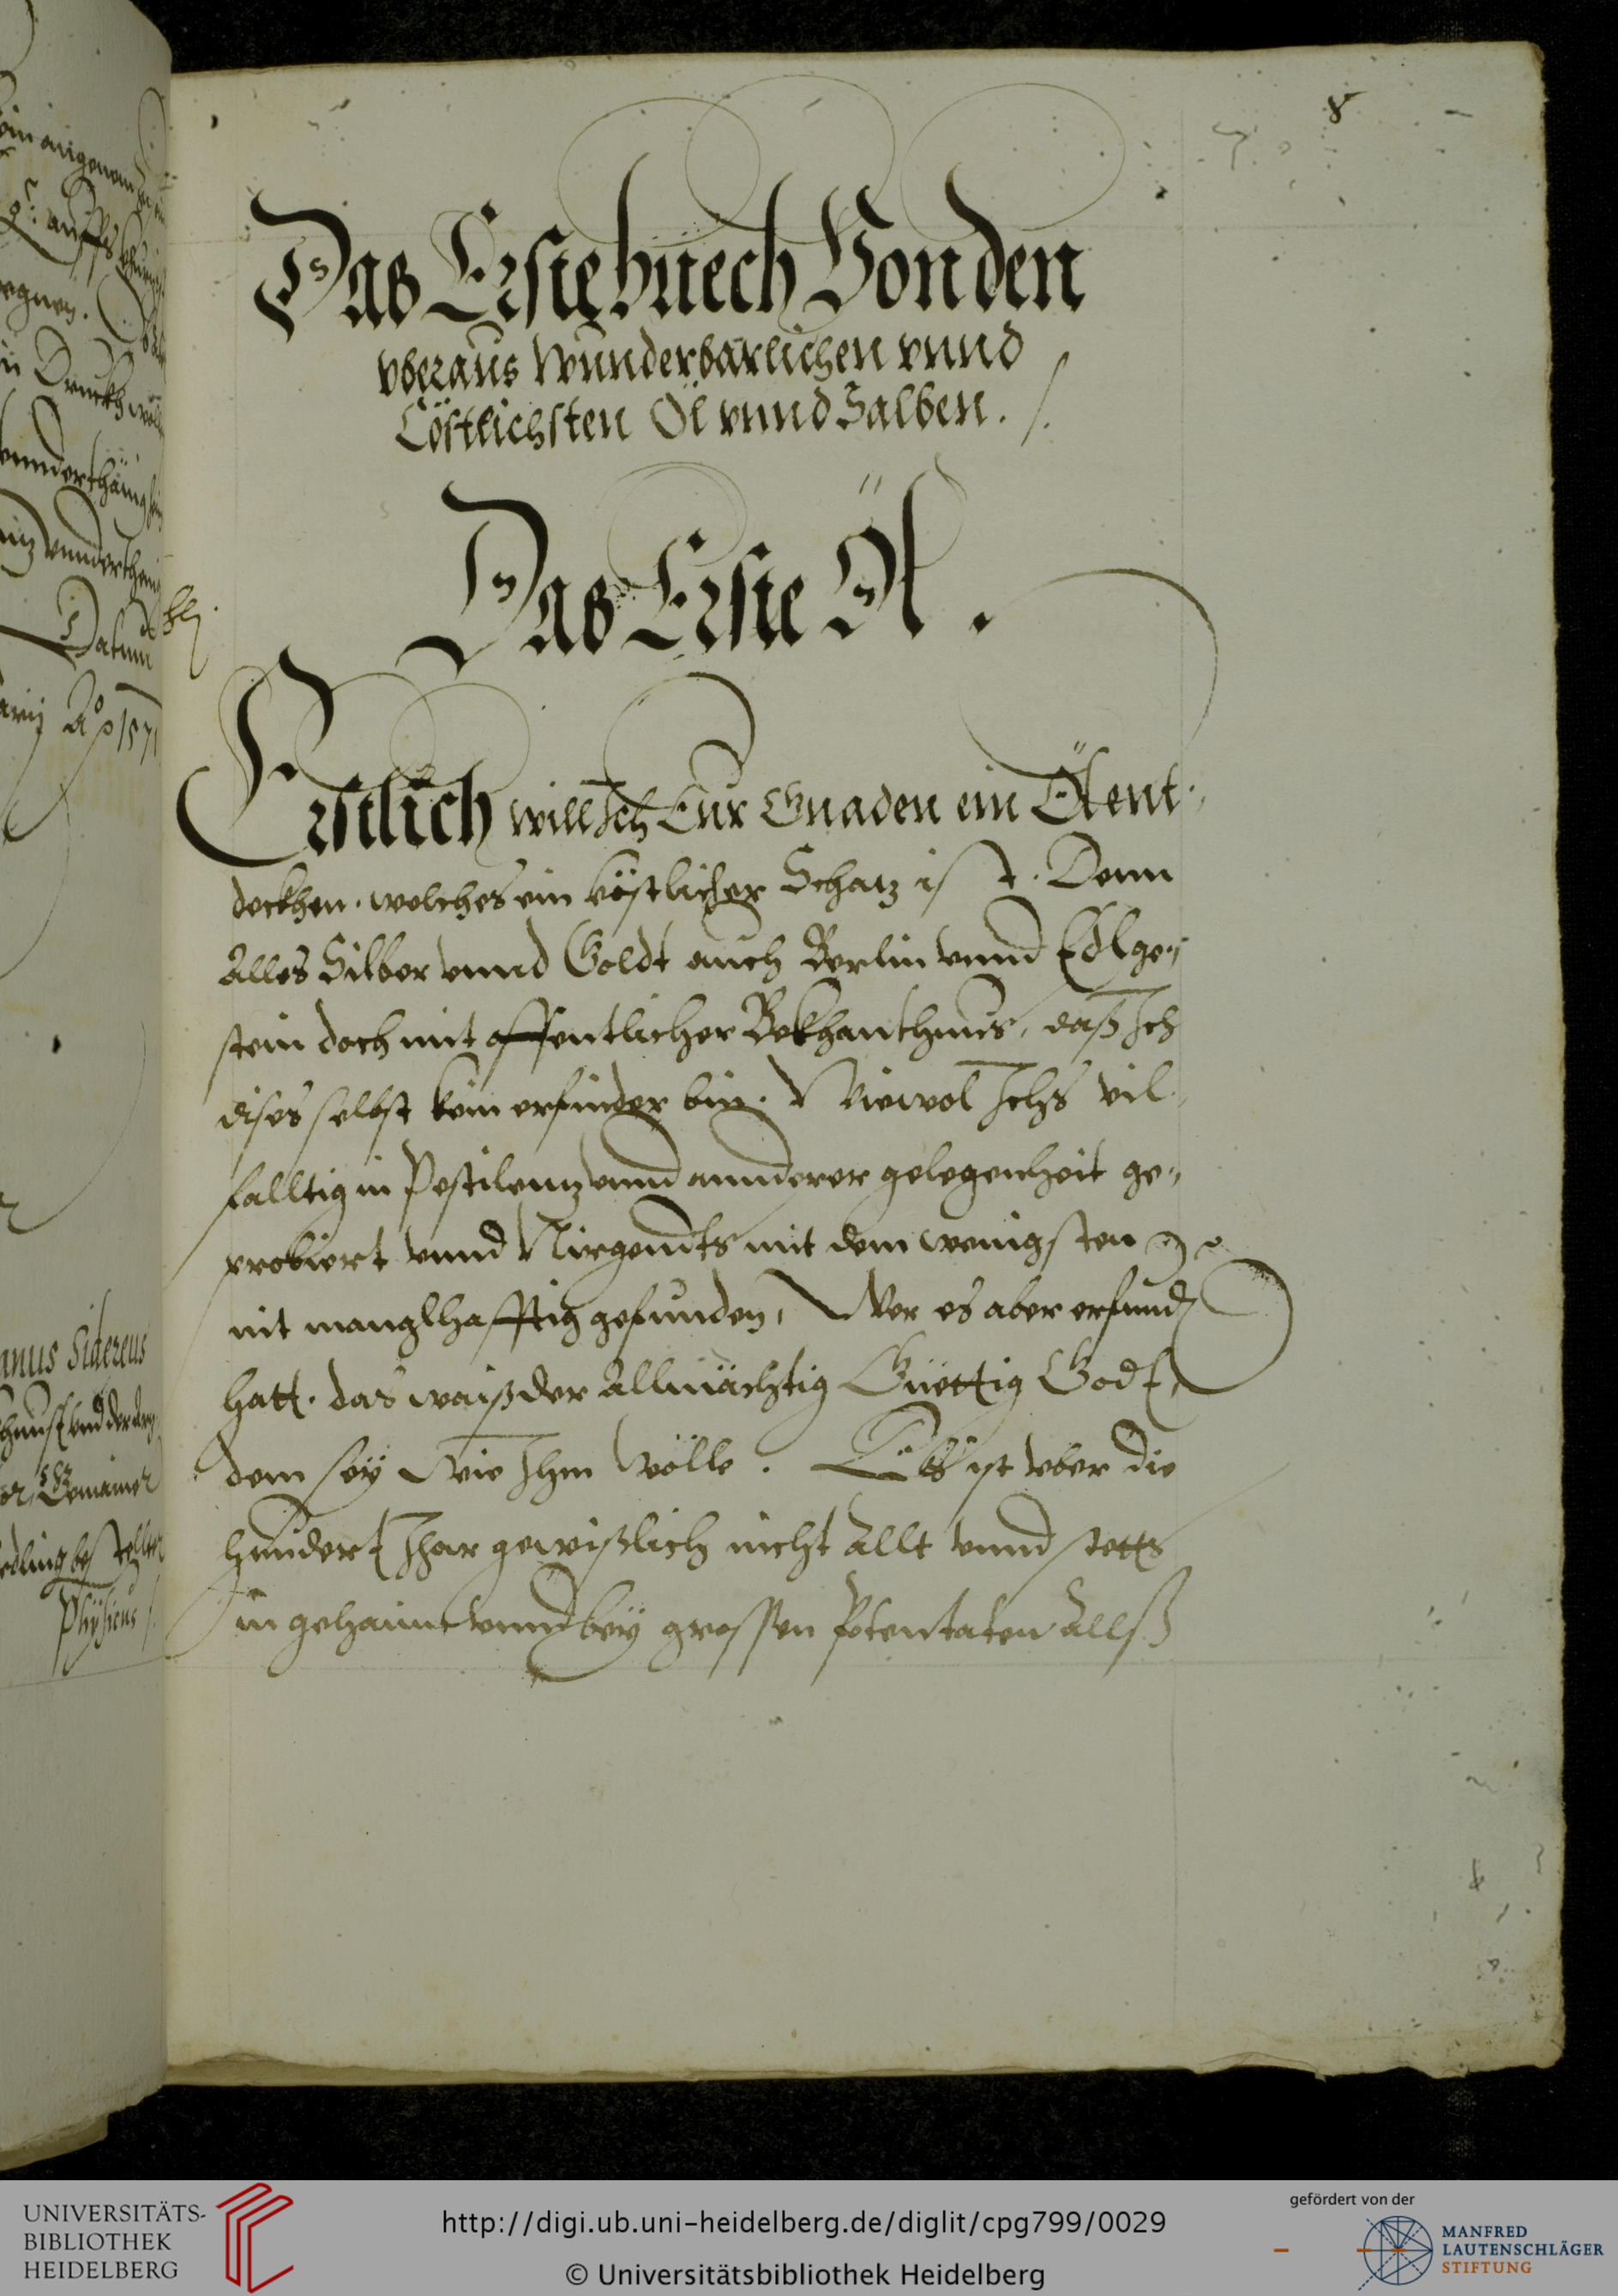 8
Das Erste buech Von den
vberaus wunderbarlichen vnnd
Cöstlichsten Öl vnnd Salben ./.
Das Erste Öl .
Erstlich will Ich Eur Gnaden ein Öl ent,,
deckhen. welches ein köstlicher Schatz ist. Denn
Alles Silber vnnd Goldt auch Berlin vnnd Edlge,,
stein doch mit offentlicher Bekhanthnus, daß Ich
dises selbst kein erfinder bin. Wiewol Ichs vil,,
falltig in Pestilenz vnnd annderer gelegenheit ge,,
probiert vnnd Nirgendts mit dem wenigsten
nit manglhafftig gefunden, Wer es aber erfund
hatt. das waiß der Allmächtig Güettig Gott,
dem sey wie Ihm wölle. Eß ist vber die
hundert Ihar gewißlich nicht Allt vnnd stetts
in gehaim vnnd bey grossen Potentaten Allß
ein angenem
auffs
in Druckh
vnnderthänig
vnnderthenig
Datum
Ao 1571
anus Sidereus
vnd der
Gemainer
bestellter
Physicus
UNIVERSITÄTS-
BIBLIOTHEK
HEIDELBERG
http://digi.ub.uni-heidelberg.de/diglit/cpg799/0029
© Universitätsbibliothek Heidelberg
gefördert von der
MANFRED
LAUTENSCHLÄGER
STIFTUNG